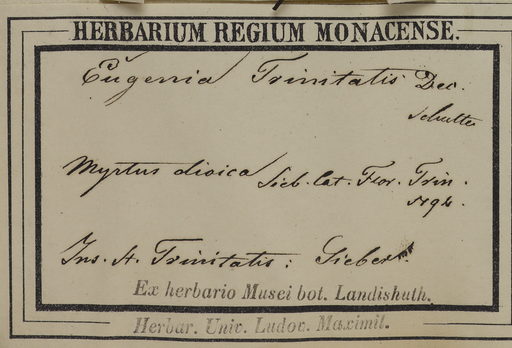 HERBARIUM REGIUM MONACENSE.
Eugenia Trinitatis Dec.
Myrtus dioica Sieb. Cat. Flor. Trin.
Ins. St. Trinitatis: Sieber.
Ex herbario Musei bot. Landishuth.
Herbar. Univ. Ludov. Maximil.